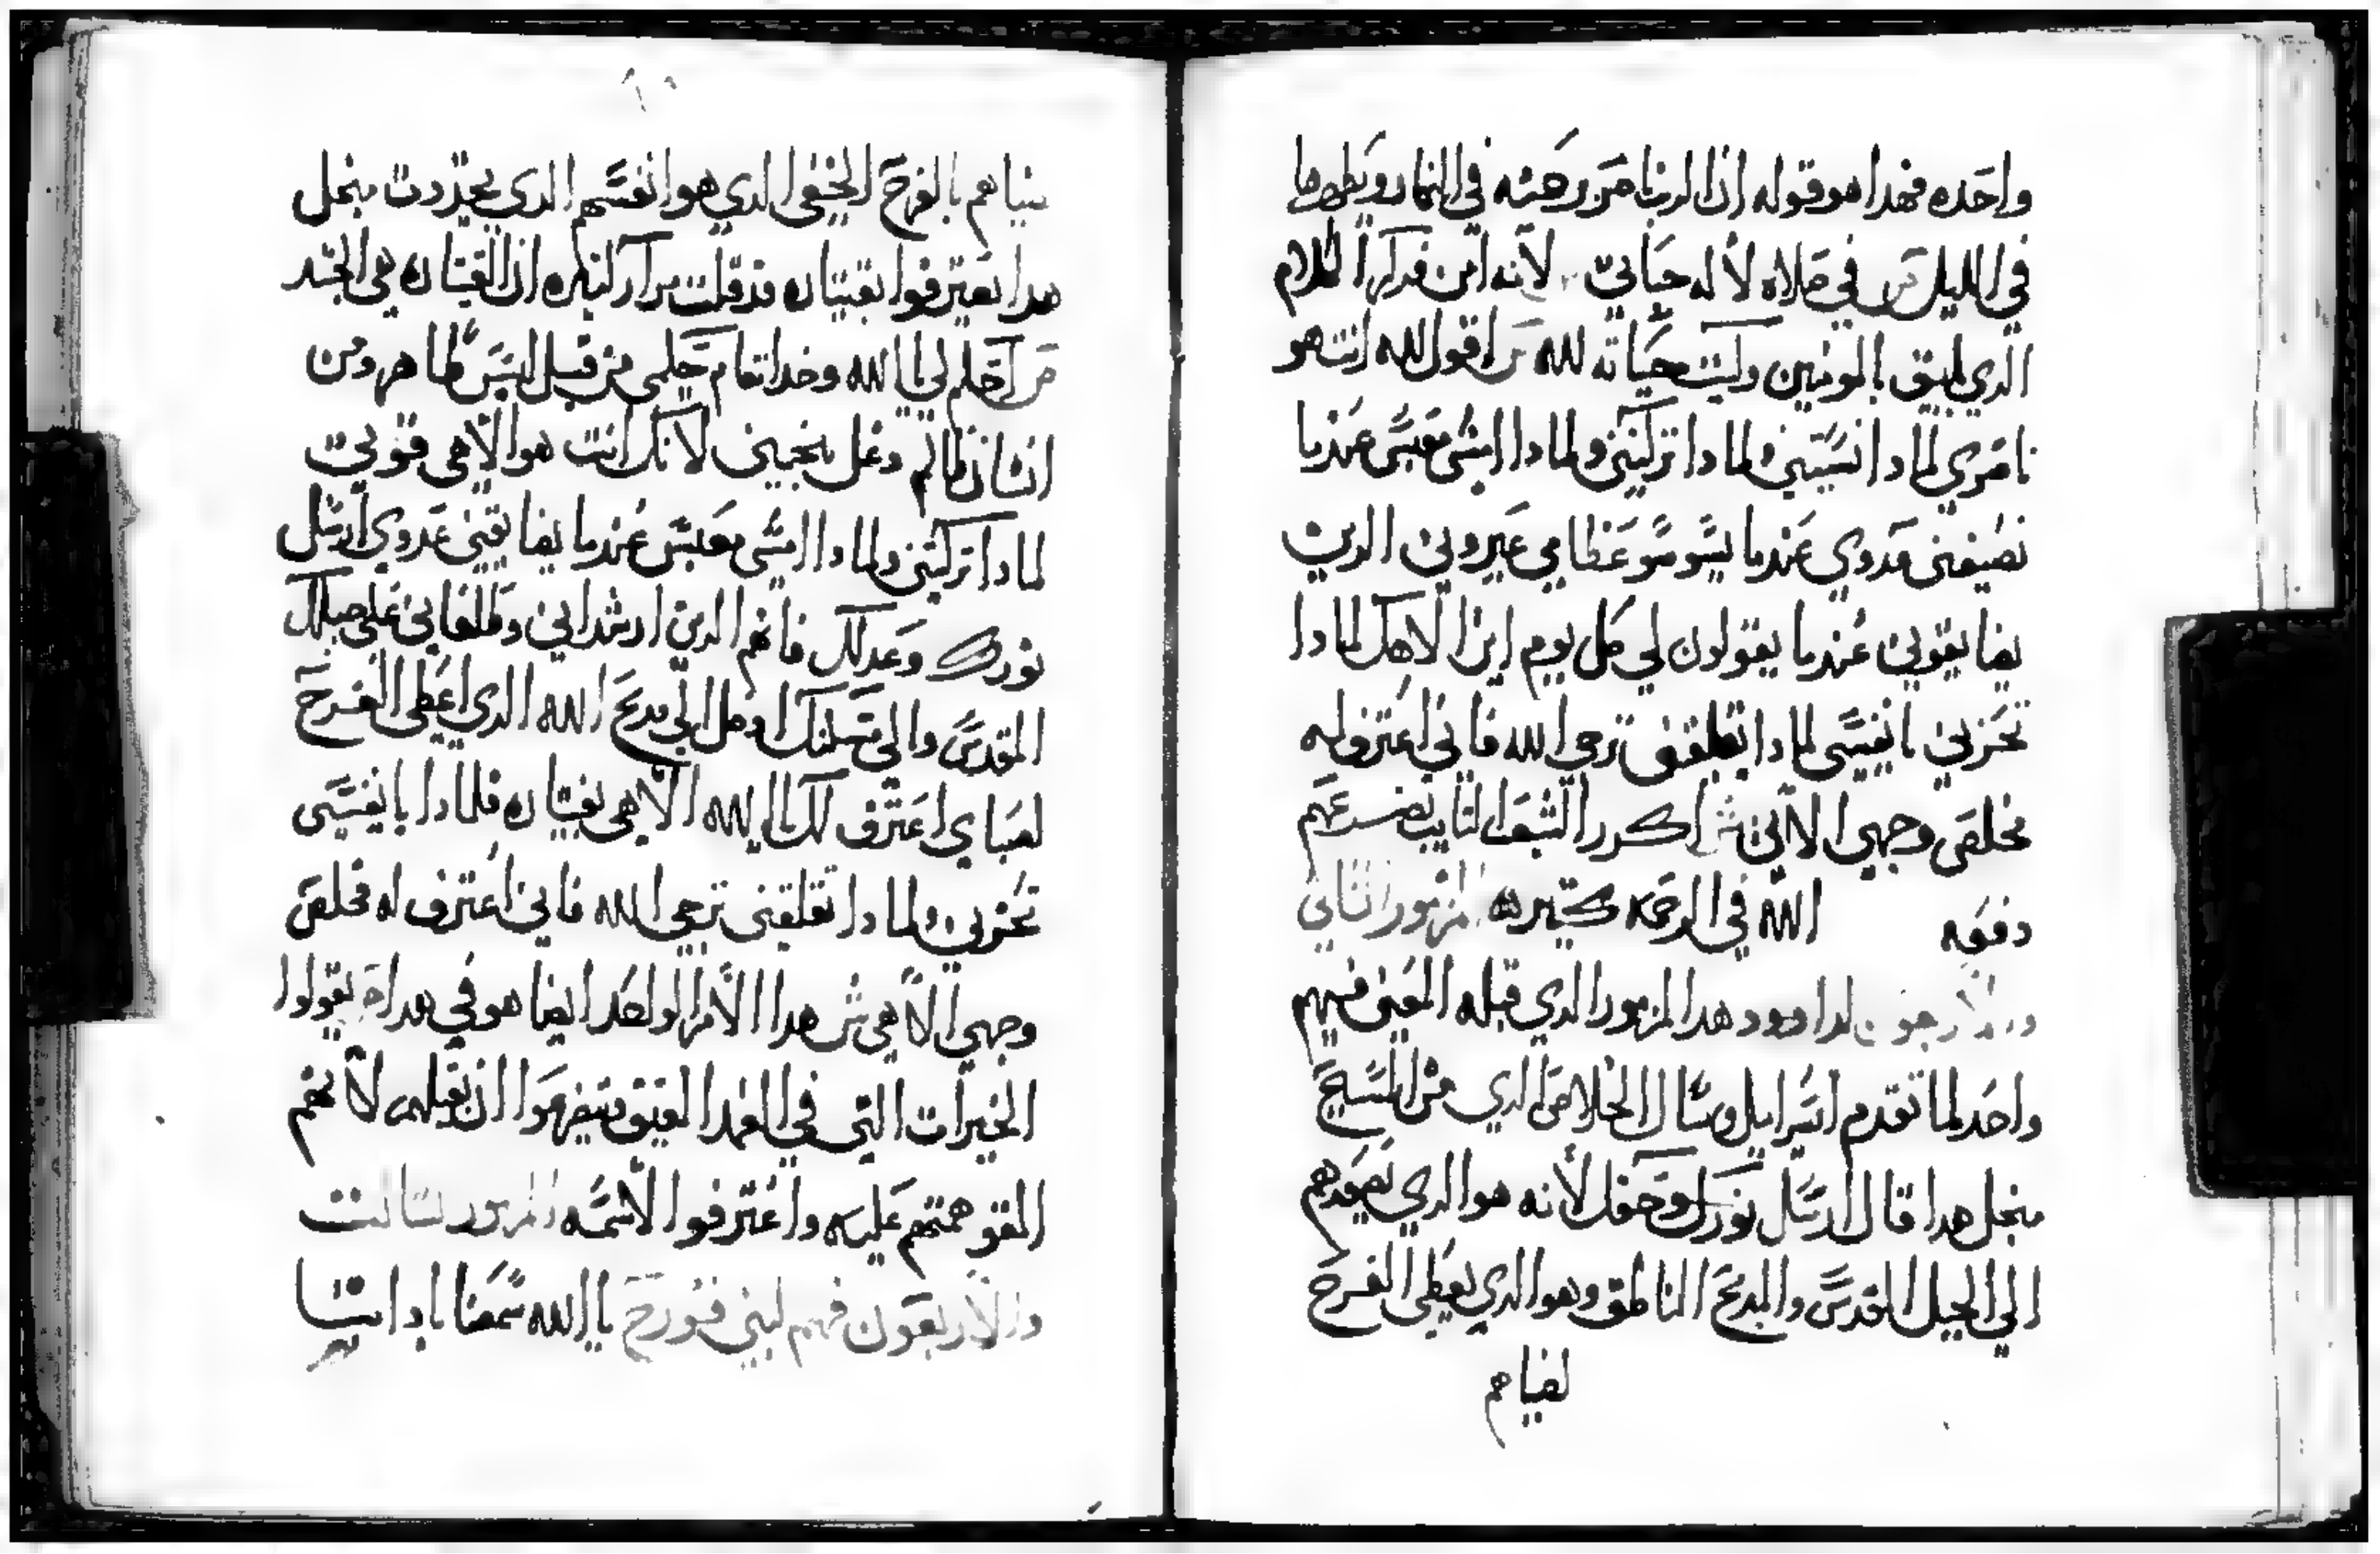 واحده فهدا هو قوله ان الرب يامر رحمته في النهار ويظهرها
في الليل من في صلاه لاله حياتي لانه امن قدام الكلام
الدي يليق بالمومنين وليت حياته لله من اقول لله انت هو
ناصري لمادا نسيتني ولمادا تركتني ولمادا امشي معبس عندما
تضيقني عدوي عندما يسوسو عظامي عيروني الدين
يضايقوني عندما يقولون لي كل يوم اين الاهك لمادا
تحزني يانفسي لمادا تقلقني ترجي الله فاني اعترف له
مخلص وجهي الاني اكرر الشفا لتايب
دفعه الله في الرحمه كتيره المزمور التاني
والاربعون لداوود هدا المزمور الدي قبله المعني فيهم
واحد لما تقدم اسراييل وسال الخلاص الدي من المسيح
منجل هدا قال ارسل نورك وحقك لانه هو الدي يصعدهم
الي الجبل المقدس والمدبح الناطق وهو الدي يعطي الفرح
لصباهم
صباهم بالفرح الخفي الدي هو انفسهم الدي يجددت منجل
هدا يعترفوا بقيتاره قد قلت مرار كتيره ان القيتاره هي الجسد
من احكم لي يا الله وخد انتقام حكمي من قبل ليس طاهر ومن
انسان ظالم دغل نجيني لانك انت هو الاهي قوتي
لمادا تركتني ولمادا امشي معبس عندما يضايقني عدوي ارسل
نورك وعدلك فانهم الدين ارشداني وطلعاني علي جبلك
المقدس والي مسكنك ادخل الي مدبح الله الدي اعطي الفرح
لصباي اعترف لك يا الله الاهي بقيتاره فلمادا يانفسي
تحزني ولمادا تقلقني ترجي الله فاني اعترف له مخلص
وجهي الاهي ش هدا الامر الواحد ايضا هو في هدا يقولوا
الخيرات التي في العهد العتيق يتضرعوا ان تعلمهم لانهم
المقو همتهم عليه واعترفوا لاسمه المزمور التالت
والاربعون فهم لبني قورح يا الله سمعنا بادانينا